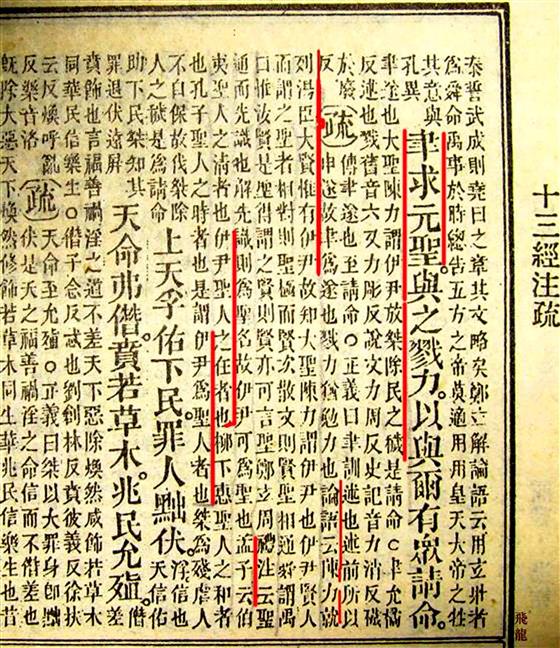 十三經注疏
泰誓武成則堯曰之章其文略矣鄭玄解論語云用玄牡者
為舜命禹事於時總告五方之帝莫適用用皇天大帝之牡
其意與
孔異
聿求元聖。與之戮力。以與爾有眾請命。
聿遂也大聖陳力謂伊尹放桀除民之穢是請命○聿允橘
反述也戮舊音六又力彫反說文力周反史記音力消反
於廢
反
疏
傳聿遂也至請命○正義曰聿訓述也述前所以
申遂故聿為遂也戮力猶勉力也論語云陳力就
列湯臣大賢惟有伊尹故知大聖陳力謂伊尹也伊尹賢人
而謂之聖者相對則聖極而賢次散文則賢聖相通舜謂禹
曰惟汝賢是聖得謂之賢則賢亦可言聖鄭玄周禮注云聖
通而先識也解先識則為聖名故伊尹可為聖也孟子云伯
夷聖人之清者也伊尹聖人之任者也柳下惠聖人之和者
也孔子聖人之時者也是謂伊尹為聖人者也桀為殘虐人
不自保故伐桀除
人之穢是為請命
上天孚佑下民。罪人黜伏。
孚信也
天信佑
助下民桀知其
罪退伏遠屏
天命弗僭。賁若草木。兆民允殖。
僭
差
賁飾也言福善禍淫之道不差天下惡除煥然咸飾若草木
同華民信樂生○僭子念反忒也劉創林反賁彼義反徐扶
云反煥呼亂
反樂音洛
疏
天命至允殖○正義曰桀以大罪身卽黜
伏是天之福善禍淫之命信而不僭差也
旣除大惡天下煥然修飾若草木同生華兆民信樂生也昔
飛龍